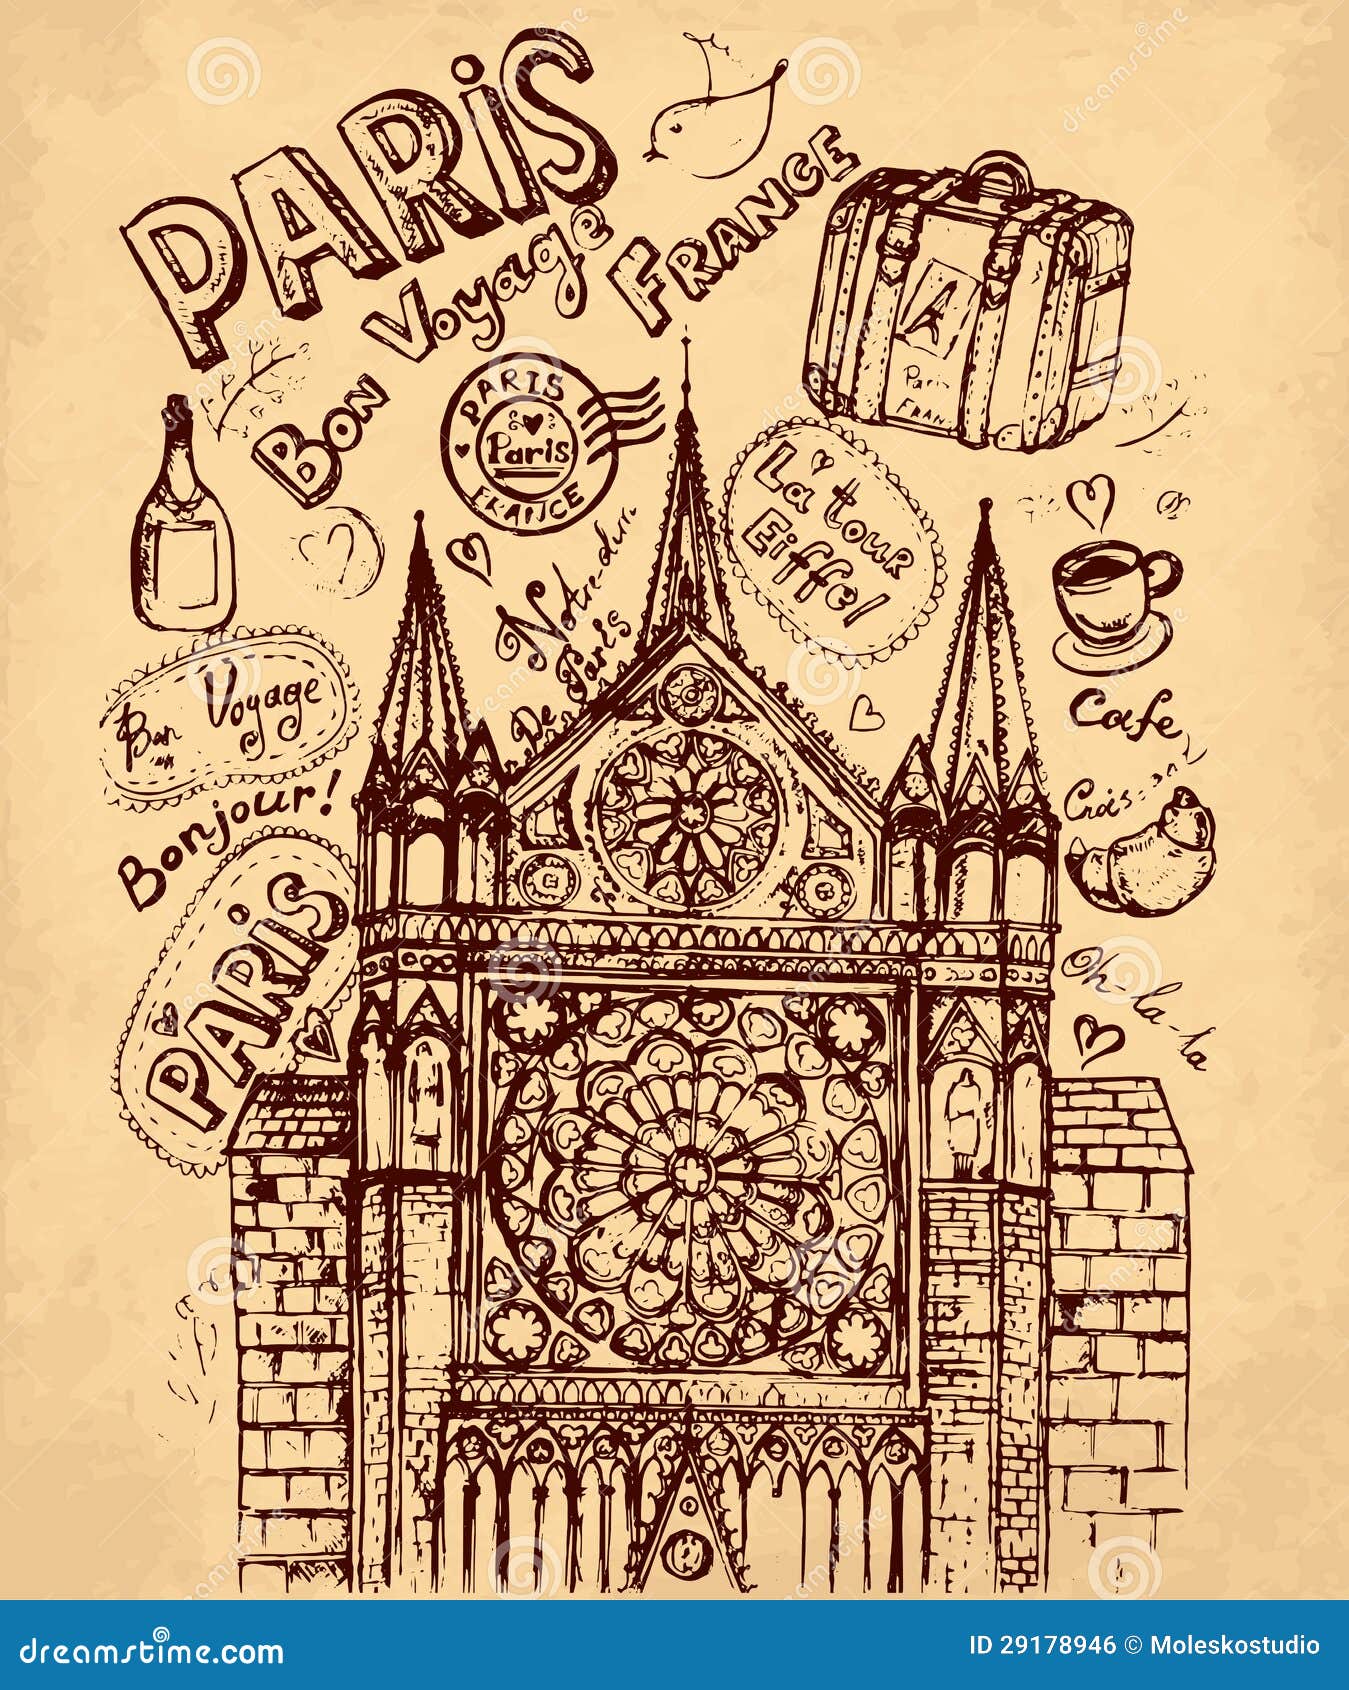 PARiS
Bon Voyage
FRANCE
PARIS
Paris
FRANCE
Paris
FRAN
La tour
Eiffel
Notre-dam
De Paris
Bon Voyage
Bonjour!
PARiS
Cafe
Crois...
Oh-la-la
dreamstime.com
ID 29178946 © Moleskostudio